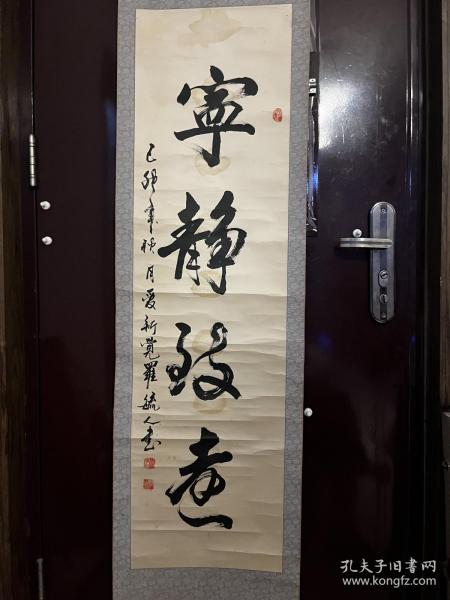 寧靜致遠
己卯年秋月愛新覺羅毓人書
孔夫子旧书网
www.kongfz.com